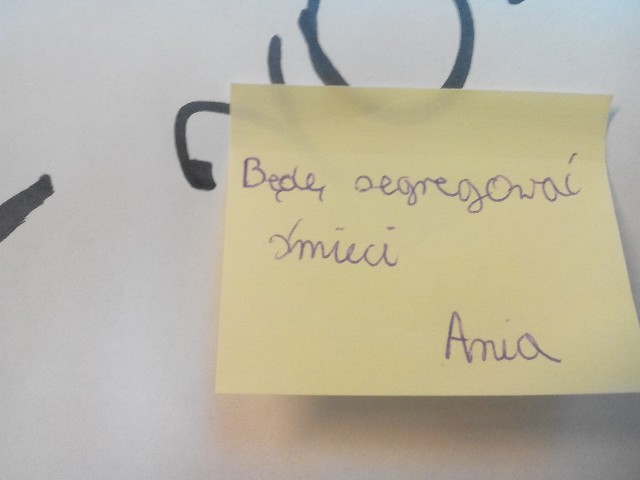 Będę segregować
śmieci
Ania